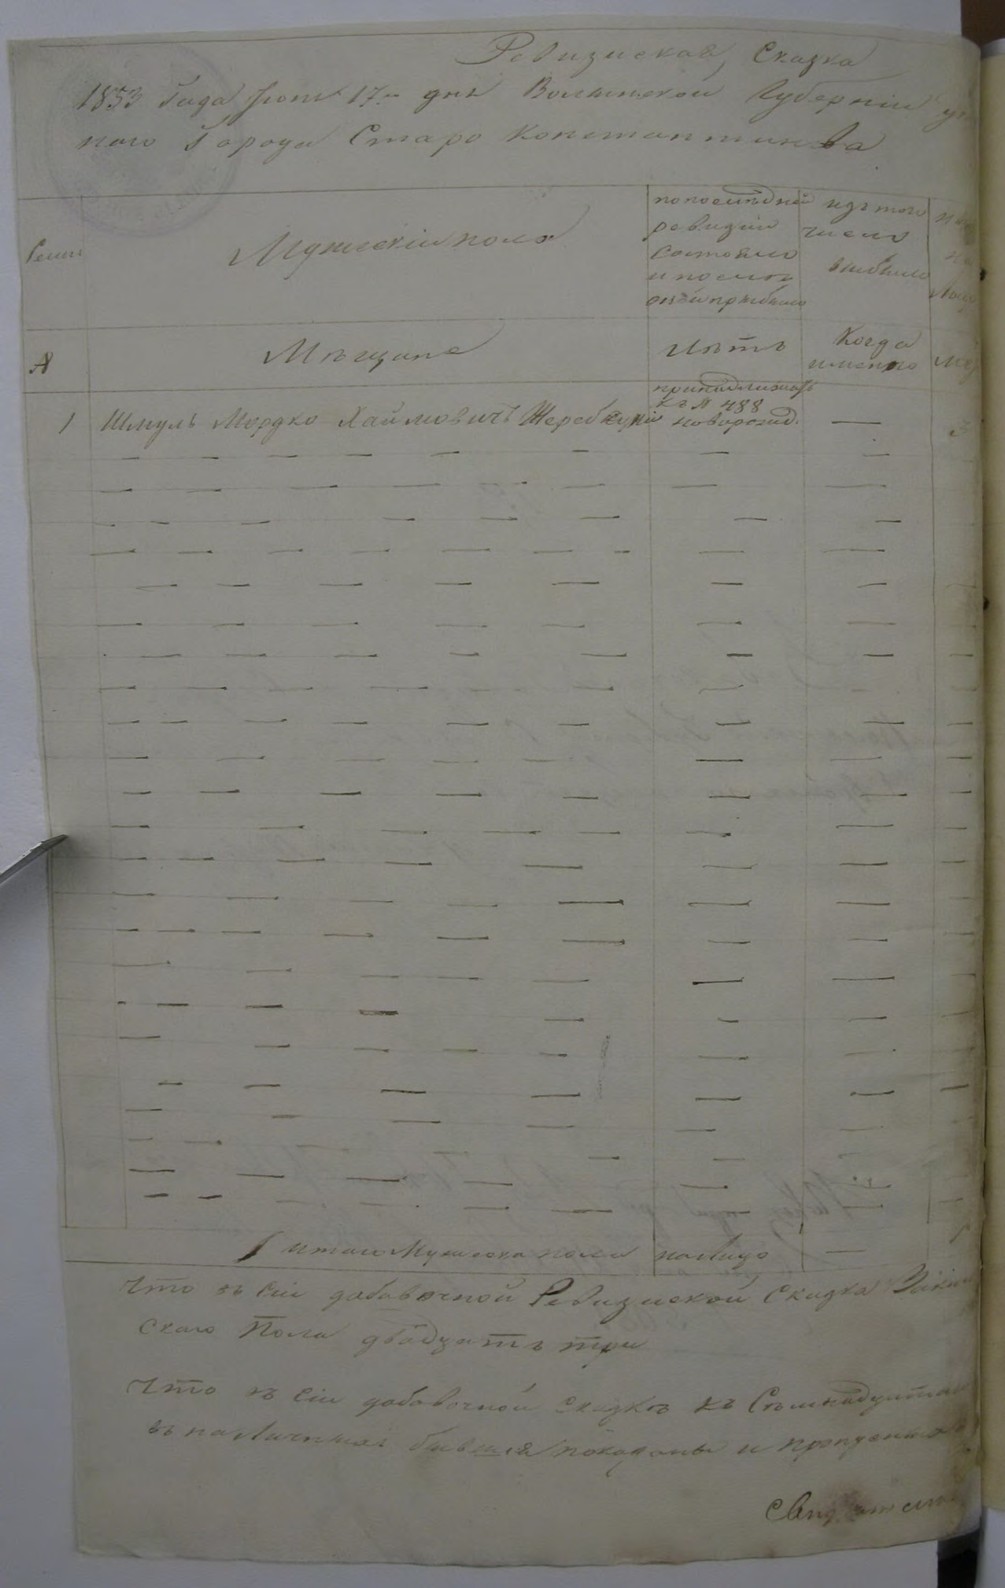 Ревизиская Сказка
1853 Года Июня 17го дня Волынской Губернии
наго Города Старо Константинова
Семьи
Мужескій полъ
по последней
ревизіи
состояло
и после
оной прибыло
изъ того
числа
выбыло
А
Мещане
Летъ
Когда
именно
1 Шмуль Мордко Хаймовичъ Жеребкукій
принадлежитъ
къ № 488
новорожд.
3
итого Мужеска пола налицо —
Что въ сей добавочной Ревизиской Сказке
скаго Пола двадцать три
Что въ сей добавочной сказке къ
въ наличныхъ бывшія показаны и